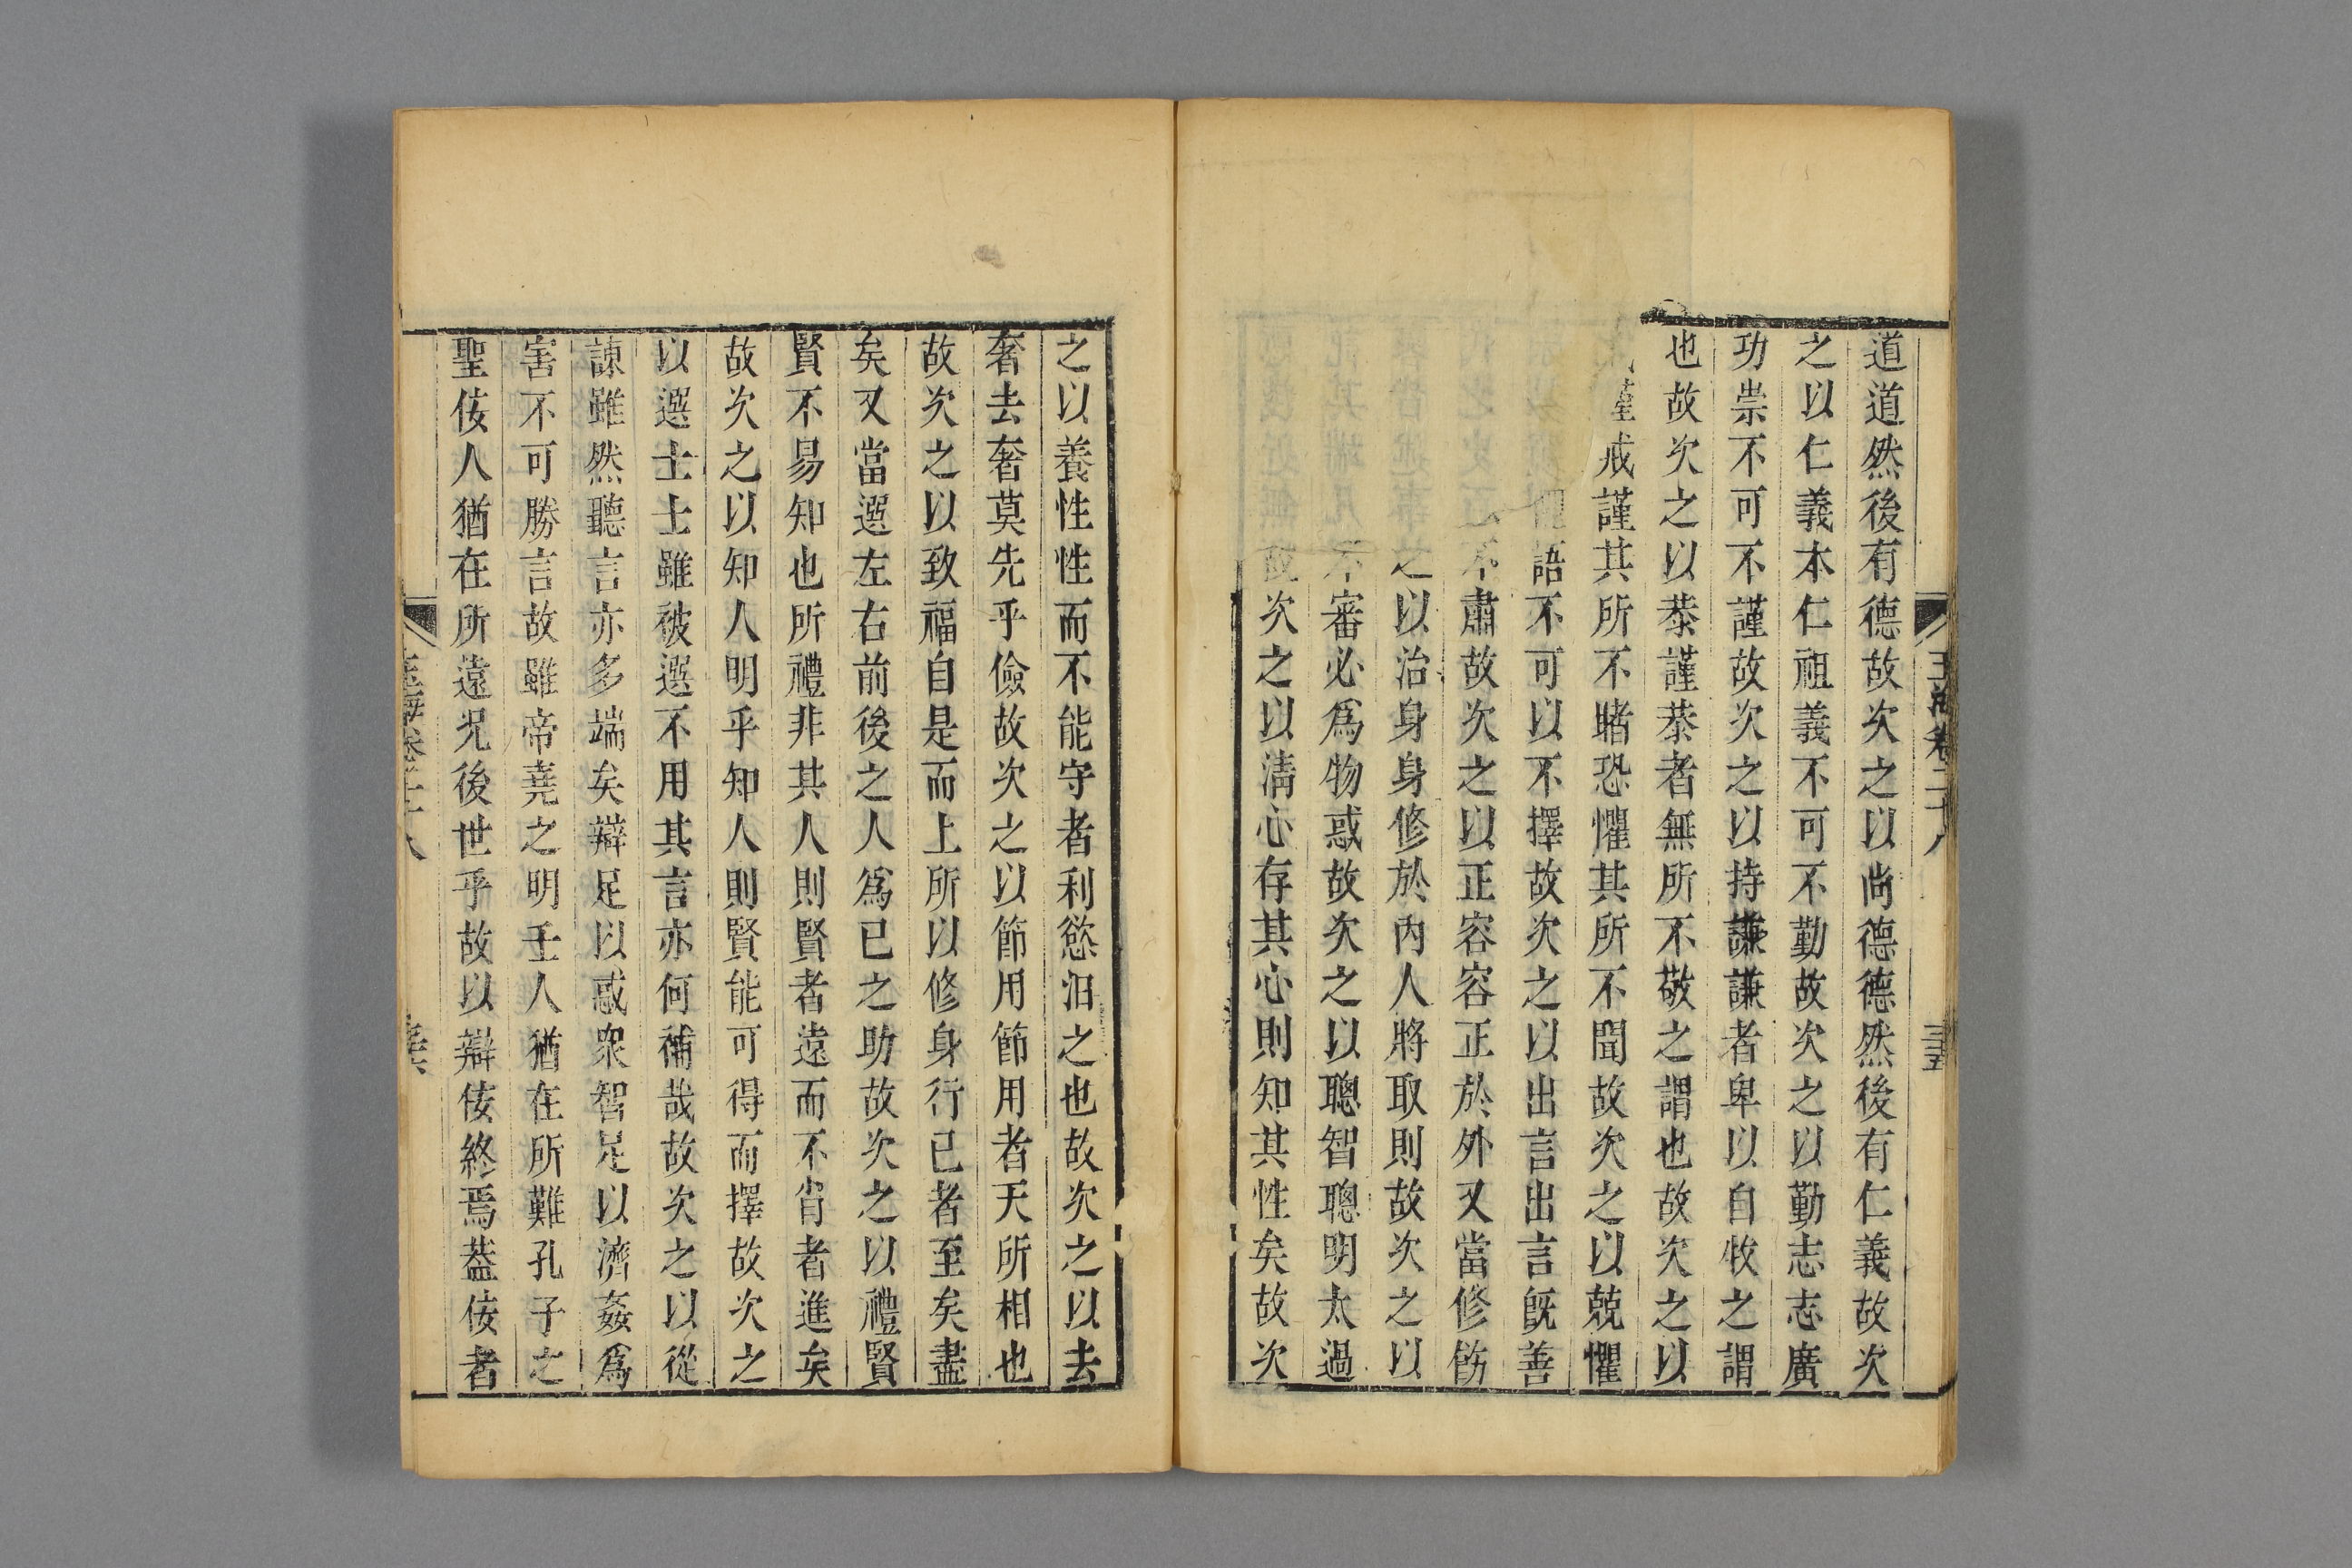 玉海卷二十八
三五
道道然後有德故次之以尚德德然後有仁義故次
之以仁義本仁祖義不可不勤故次之以勤志志廣
功崇不可不謹故次之以持謙謙者卑以自牧之謂
也故次之以恭謹恭者無所不敬之謂也故次之以
戒謹其所不睹恐懼其所不聞故次之以兢懼
語不可以不擇故次之以出言出言旣善
不肅故次之以正容容正於外又當修飭
之以治身身修於內人將取則故次之以
不審必爲物惑故次之以聰智聰明太過
故次之以淸心存其心則知其性矣故次
之以養性性而不能守者利慾汩之也故次之以去
奢去奢莫先乎儉故次之以節用節用者天所相也
故次之以致福自是而上所以修身行已者至矣盡
矣又當選左右前後之人爲已之助故次之以禮賢
賢不易知也所禮非其人則賢者遠而不肖者進矣
故次之以知人明乎知人則賢能可得而擇故次之
以選士士雖被選不用其言亦何補哉故次之以從
諫雖然聽言亦多端矣辯足以惑衆智足以濟姦爲
害不可勝言故雖帝堯之明壬人猶在所難孔子之
聖佞人猶在所遠况後世乎故以辯佞終焉葢佞者